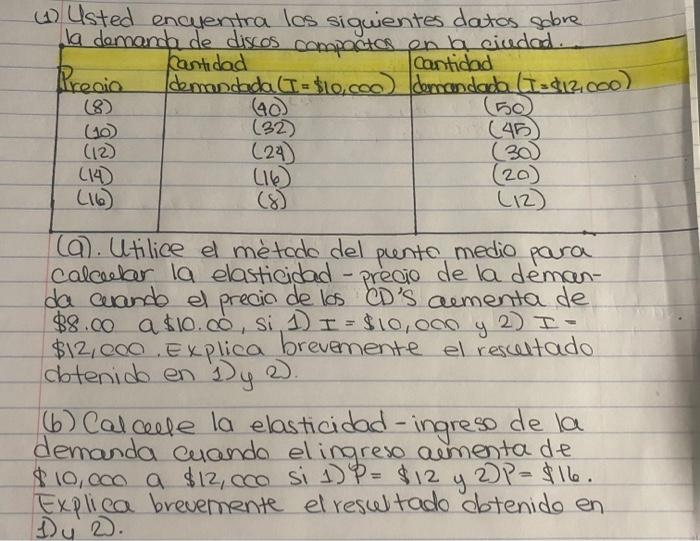 (1) Usted encuentra los siguientes datos sobre
la demanda de discos compactos en la ciudad.
Precio | Cantidad demandada (I=$10,000) | Cantidad demandada (I=$12,000)
(8) (40) (50)
(10) (32) (45)
(12) (24) (30)
(14) (16) (20)
(16) (8) (12)
(a). Utilice el mètodo del punto medio para
calcular la elasticidad - precio de la deman-
da cuando el precio de los CD'S aumenta de
$8.00 a $10.00, si 1) I = $10,000 y 2) I =
$12,000. Explica brevemente el resultado
obtenido en 1) y 2).
(b) Calcule la elasticidad - ingreso de la
demanda cuando el ingreso aumenta de
$10,000 a $12,000 si 1) P= $12 y 2) P= $16.
Explica brevemente el resultado obtenido en
1) y 2).